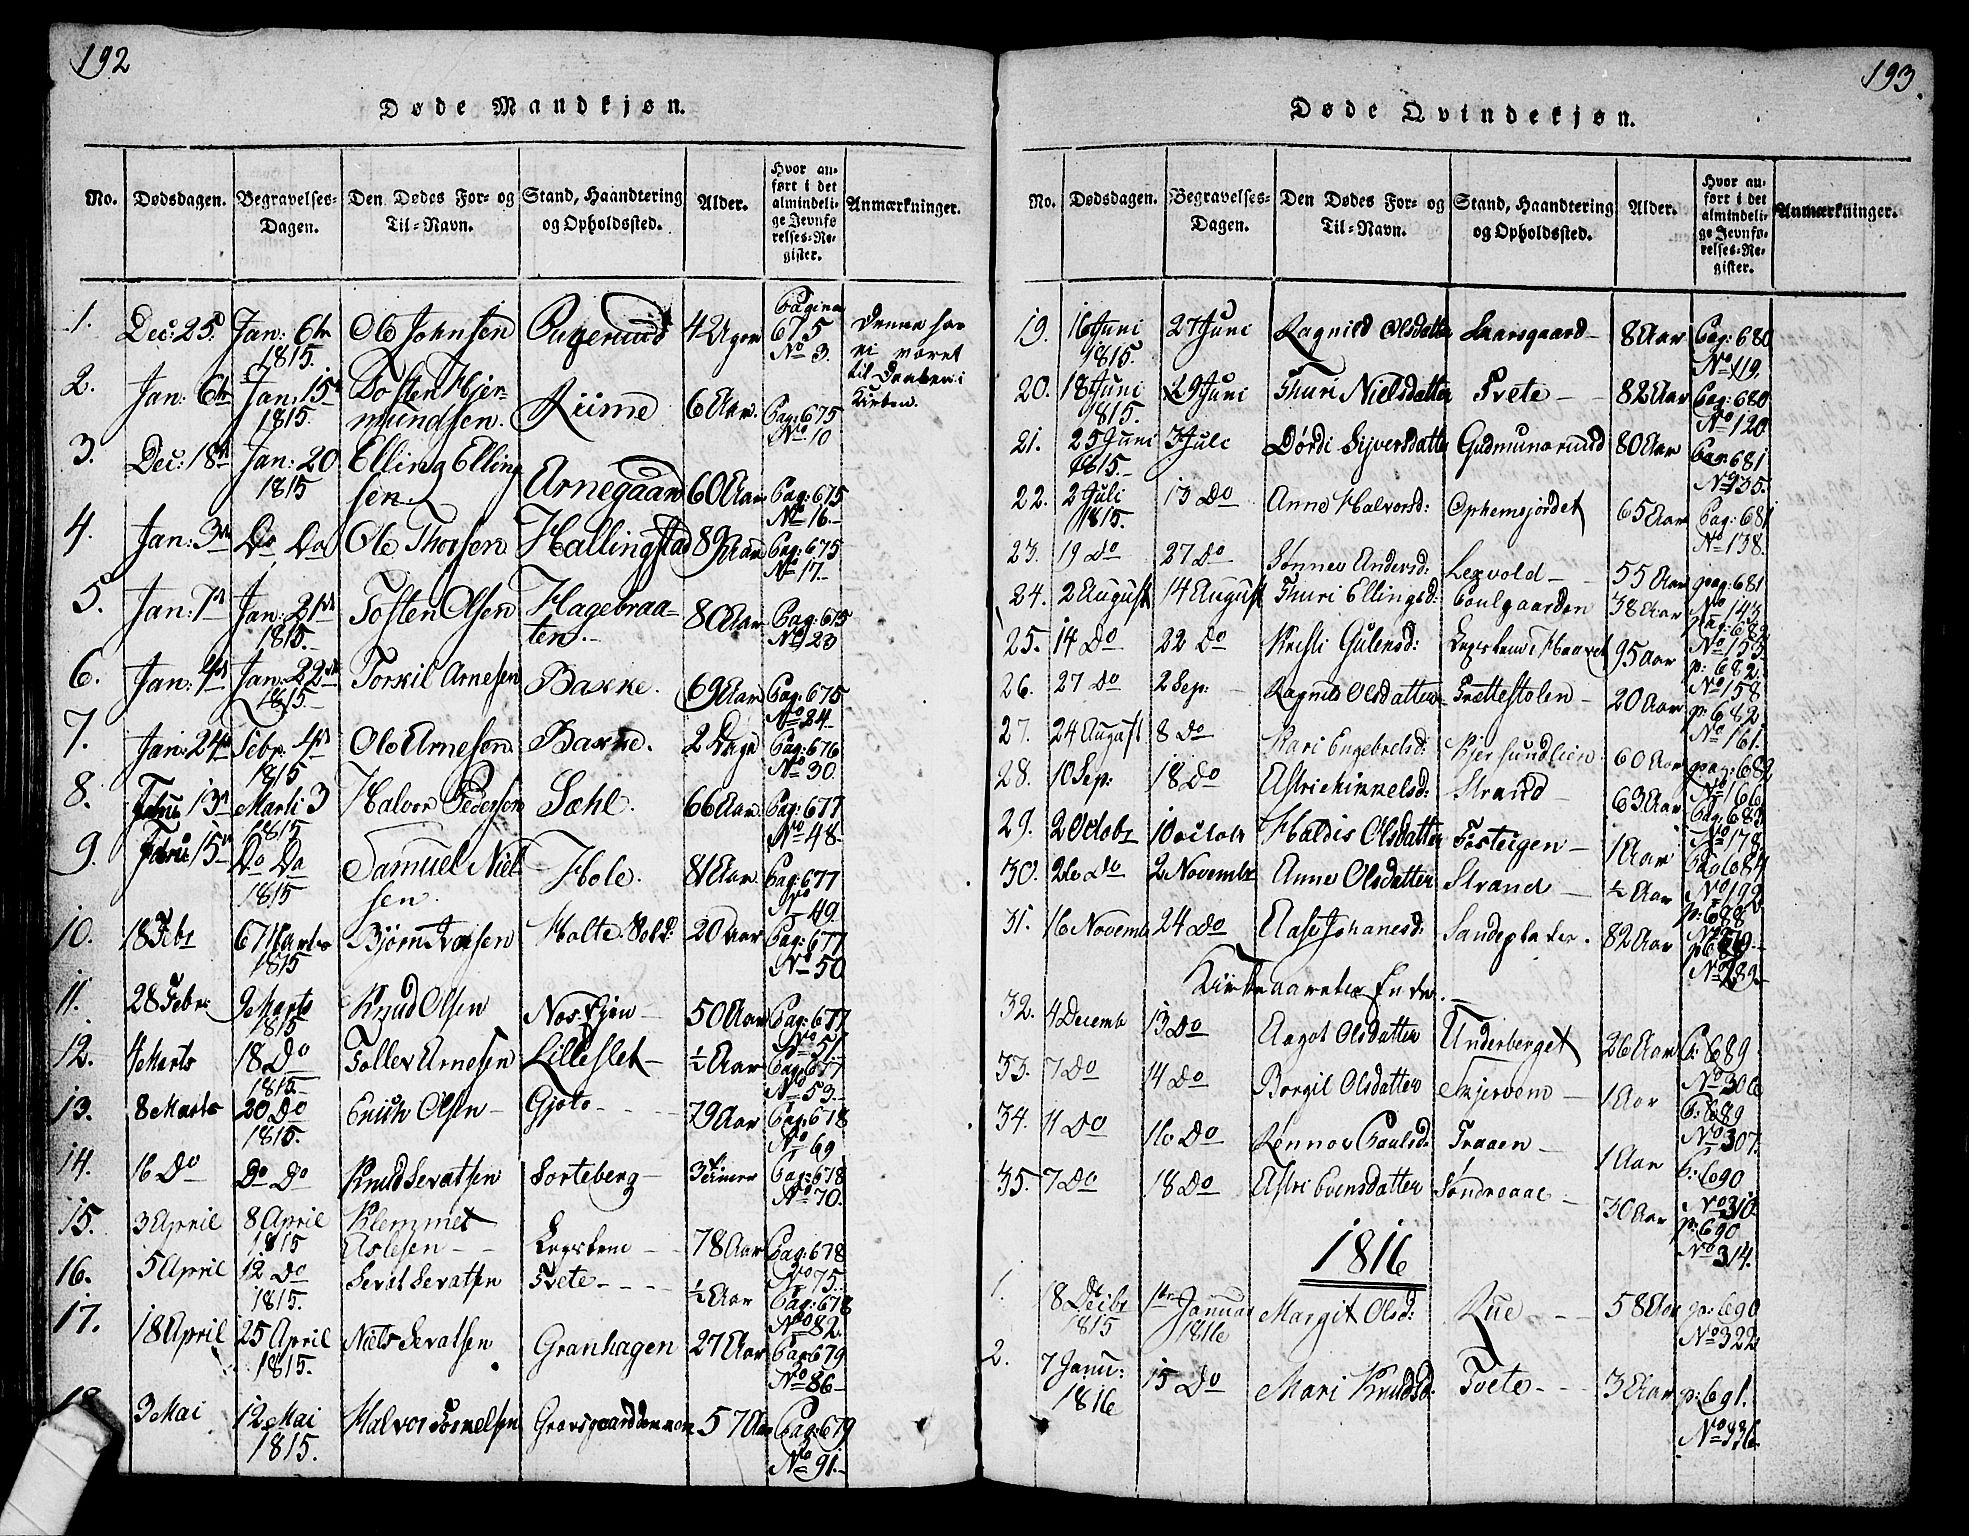 192
Døde Mandkjøn.
No. Dødsdagen. Begravelses-Dagen. Den Dødes For- og Til-Navn. Stand, Haandtering og Opholdssted. Alder. Hvor anført i det almindelige Jevnførelses-Register. Anmærkninger.
1. Dec: 25 Jan: 6te 1815. Ole Johnsen 4 Uger Pagina 675 No 3. Denne har
vi været
til Daaben i
Kirken.
2. Jan: 6te Jan: 15de 1815. Tosten Hjermundsen. Riime 6 Aar. Pag: 675 No 10
3. Dec: 18de Jan: 20 1815 Elling Ellingsen. Arnegaard 60 Aar Pag: 675 No 16.
4. Jan: 3die Do Do Ole Thorsen Hallingstad 89 Aar Pag: 675 No 17.
5. Jan: 7de Jan: 21de 1815. Tosten Olsen Hagebraaten. 80 Aar Pag: 675 No 23
6. Jan: 4de Jan: 22de 1815. Torkil Arnesen Bakke. 69 Aar Pag: 675 No 24
7. Jan: 24de Febr. 4de 1815 Ole Arnesen Bakke. 2 Dage Pag: 676 No 30.
8. Febru 13de Marti 3 1815 Halvor Pedersen Sæhl. 66 Aar. Pag: 677 No 48.
9. Febru 15de Do Do 1815 Samuel Nielsen. Hole. 81 Aar. Pag: 677 No 49.
10. 18 Febr 6 Marts 1815 Bjørn Iversen Holte 20 Aar Pag: 677 No 50
11. 28 Febr 9 Marts 1815 Knud Olsen 50 Aar Pag: 677 No 51.
12. Marts 18 Do 1815 Tollev Arnesen Lilleslet ½ Aar Pag: 677 No 53.
13. 8 Marts 20 Do 1815. Erich Olsen Gjøto 79 Aar Pag: 678 No 69
14. 16 Do Do Do Knud Sevatsen Sorteberg 3 Timer Pag: 678 No 70.
15. 3 April 8 April 1815 Klemmet Aslesen 78 Aar Pag: 678 No 75.
16. 5 April 12 Do 1815. Sevat Sevatsen Tvete ½ Aar Pag: 678 No 82.
17. 18 April 25 April 1815. Niels Sevatsen Granhagen 27 Aar Pag 679 No 86
18 3 Mai 12 Mai 1815. Halvor 57 Aar Pag: 679 No 91.
193.
Døde Qvindekjøn.
No. Dødsdagen. Begravelses-Dagen. Den Dødes For- og Til-Navn. Stand, Haandtering og Opholdssted. Alder. Hvor anført i det almindelige Jevnførelses-Register. Anmærkninger.
19. 16 Juni 1815. 27 Juni Ragnild Olsdatter 8 Aar Pag: 680 No 119.
20. 18 Juni 1815. 29 Juni Thuri Nielsdatter Tvete 82 Aar Pag: 680 No 120
21. 25 Juni 1815. 3 Juli Dørdi Sijversdatter Gudmunsrud 80 Aar Pag: 681 No 135.
22. 2 Juli 1815. 13 Do Anne Halvorsd: Ophemsjordet 65 Aar Pag: 681 No 138.
23. 19 Do 27 Do Sønnev Andersd: Lexvold 55 Aar pag: 681 No 143
24. 2 August 14 August Thuri Ellingsd: Poulgaarden 38 Aar pag: 682 No 153
25. 14 Do 22 Do Kristi Gulensd: 95 Aar p: 682. No 158
26. 27 Do 2 Sep: Ragnild Olsdatter Trættestolen 20 Aar p: 682. No 161.
27. 24 August 8 Do Kari Engebretsd: 60 Aar pag: 682 No 166
28. 10 Sep: 18 Do Astri Strand 63 Aar Pag: 683. No 178
29. 2 Octobr 10 Haldis Olsdatter Torsteigen 1 Aar Pag 684 No 192
30. 26 Do 2 Novembr Anne Olsdatter Strand ½ Aar p: 688
31. 16 Novemb 24 Do Aase Johanesd: 82 Aar No 289.
Kirkeaarets Ende.
32. 4 Decemb 13 Do Aagot Olsdatter Underberget 26 Aar P: 689 No 306
33. 7 Do 14 Do Borgil Olsdatter Skjervem 1 Aar P: 689 No 307.
34. 11 Do 16 Do Rønnov Paulsd: Traaen 1 Aar P: 690 No 310.
35. 7 Do 18 Do Astri Evensdatter Søndreaal 30 Aar p: 690 No 314.
1816
1. 18 Decbr 1815 1ste Januar 1816 Margit Olsd: Rue 58 Aar p: 690 No 322
2. 7 Janu: 1816 15 Do Mari Knudsd: Tvete 3 Aar p: 691. No 336